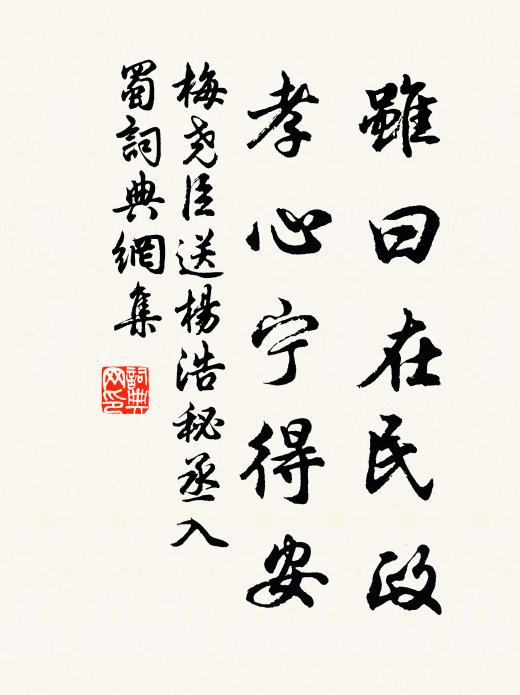 雖曰在民政
孝心宁得安
梅尧臣送楊浩秘丞入
蜀詞典網集
詞典网印